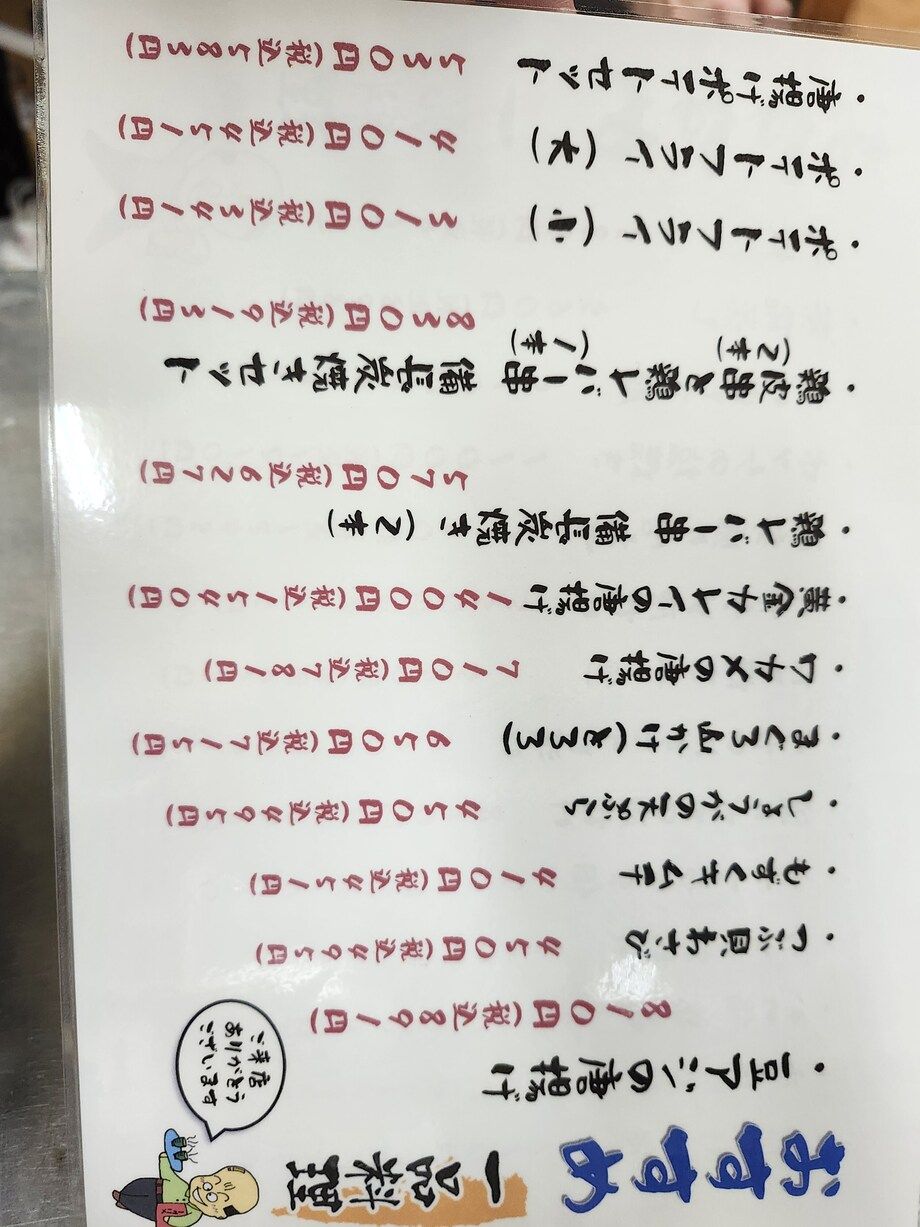 おすすめ 一品料理
ご来店
ありがとう
ございます
・豆アジの唐揚げ
810円(税込891円)
・つぶ貝わさび 450円(税込495円)
・もずくキムチ 410円(税込451円)
・しょうがの天ぷら 450円(税込495円)
・まぐろ山かけ(とろろ) 650円(税込715円)
・ワカメの唐揚げ 710円(税込781円)
・黄金カレイの唐揚げ 1400円(税込1540円)
・鶏レバー串 備長炭焼き(2本)
570円(税込627円)
・鶏皮串と鶏レバー串 備長炭焼きセット
(2本) (1本)
830円(税込913円)
・ポテトフライ(小) 310円(税込341円)
・ポテトフライ(大) 410円(税込451円)
・唐揚げポテトセット 530円(税込583円)